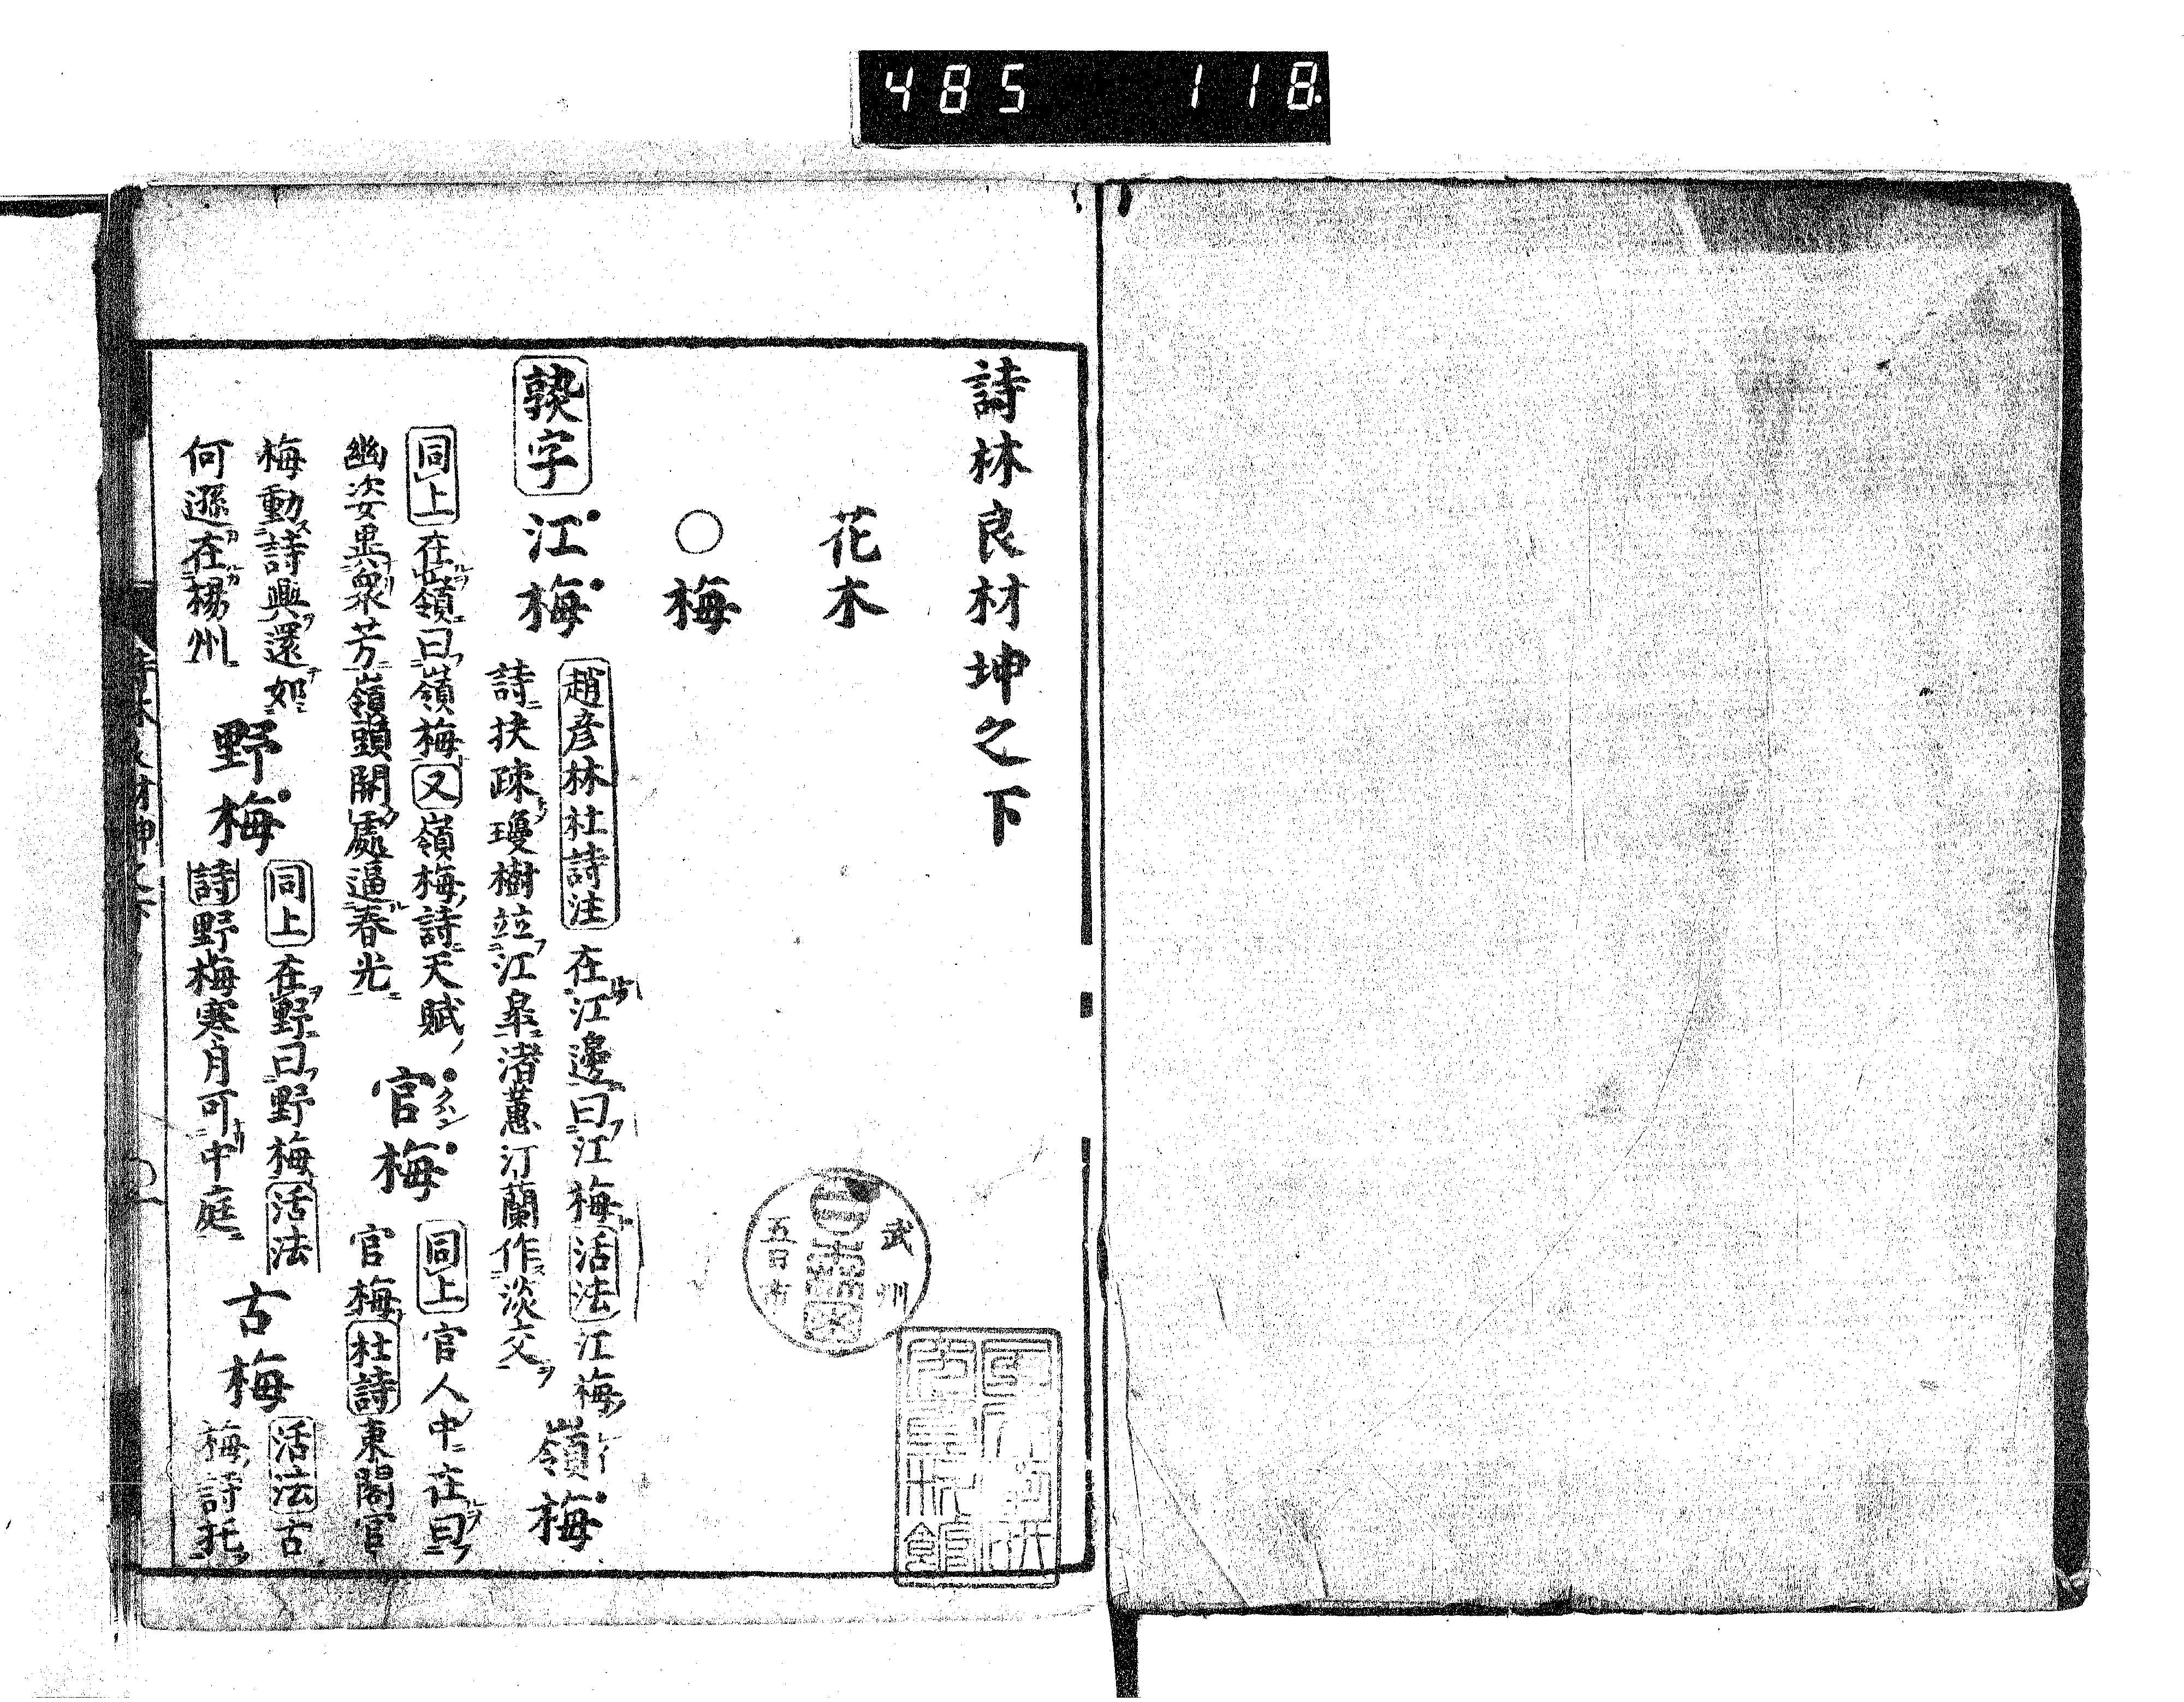 485 118
詩林良材坤之下
花木
○梅
孰字 江梅
趙彦林杜詩注 在江邊曰江梅 活法 江梅
詩扶疎瓊樹竝江皋渚蕙汀蘭作淡交
嶺梅
同上 在嶺曰嶺梅 又 嶺梅詩天賦
幽姿異衆芳嶺頭開處逼春光
官梅
同上 官人中在曰
官梅 杜詩 東閣官
梅動詩興還如
何遜在楊州
野梅
同上 在野曰野梅 活法
詩 野梅寒月可中庭
古梅
活法 古
梅詩托
武州
五日市